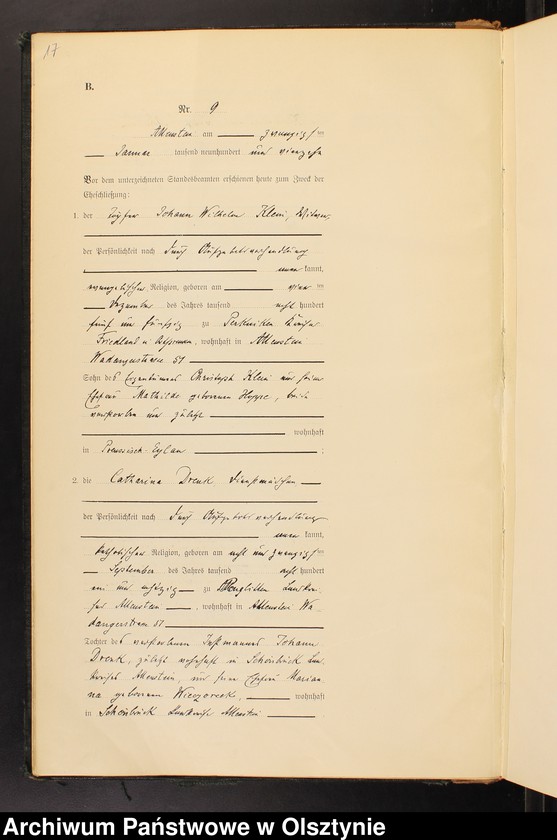 17
B.
Nr. 9
Allenstein am zwanzigsten
Januar tausend neunhundert und vierzehn
Vor dem unterzeichneten Standesbeamten erschienen heute zum Zweck der
Eheschließung:
1. der Töpfer Johann Wilhelm Klein, Witwer,
der Persönlichkeit nach durch Aufgebotsverhandlung
aner kannt,
evangelischer Religion, geboren am vierten
Dezember des Jahres tausend acht hundert
fünf und fünfzig zu Perkuiken Kreise
Friedland in Ostpreussen, wohnhaft in Allenstein
Wadangerstrasse 51
Sohn des Eigentümers Christoph Klein und seiner
Ehefrau Mathilde geborenen Hoppe, beide
verstorben und zuletzt
wohnhaft
in Preussisch-Eylau ;
2. die Catharina Drenk Dienstmädchen
der Persönlichkeit nach durch Aufgebotsverhandlung
aner kannt,
katholischer Religion, geboren am acht und zwanzigsten
September des Jahres tausend acht hundert
ein und achtzig zu Landkrei-
ses Allenstein, wohnhaft in Allenstein Wa-
dangerstrasse 51
Tochter des verstorbenen Instmannes Johann
Drenk, zuletzt wohnhaft in Schönbrück Land-
kreises Allenstein, und seiner Ehefrau Marian-
na geborenen Wieczorrek, wohnhaft
in Schönbrück Landkreises Allenstein
Archiwum Państwowe w Olsztynie